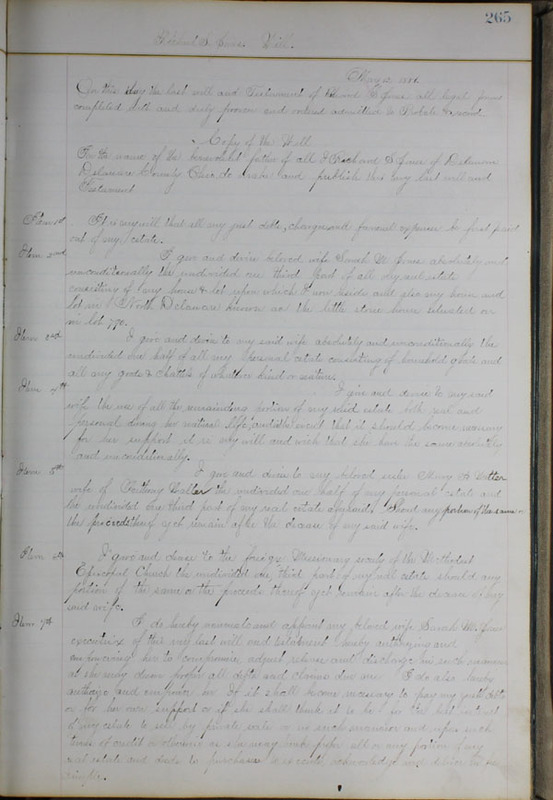 265
Will.
May 12 18
On this day the last will and Testament of all legal
completed with and duly proven and ordered admitted to Probate & record
Copy of the Will
In the name of the benevolent father of all I Jones of Delaware
Delaware County Ohio, do make and publish this my last will and
Testament
Item 1st It is my will that all my just debts, charges and funeral expenses be first paid
out of my estate.
Item 2nd I give and devise beloved wife Sarah M. Jones absolutely and
unconditionally the undivided one third part of all my real estate
consisting of my house & lot upon which I now reside and also my house and
lot in North Delaware known as the little stone house situated on
in lot 770.
Item 3rd I give and devise to my said wife absolutely and unconditionally the
undivided one half of all my personal estate consisting of household goods and
all my goods & chattels of whatever kind or nature.
Item 4th I give and devise to my said
wife the use of all the remaining portion of my said estate both real and
personal during her natural life, and in the event that it should become necessary
for her support it is my will and wish that she have the same absolutely
and unconditionally.
Item 5th I give and devise to my beloved sister Mary A
wife of the undivided one half of my personal estate and
the undivided one third part of my real estate Should any portion of the same or
the proceeds thereof yet remain after the decease of my said wife.
Item 6th I give and devise to the foreign Missionary society of the Methodist
Episcopal Church the undivided one third part of my real estate should any
portion of the same or the proceeds thereof yet remain after the decease of my
said wife.
Item 7th I do hereby nominate and appoint my beloved wife Sarah M. Jones
executrix of this my last will and testament hereby authorizing and
empowering her to compromise, adjust, release and discharge in such manner
as she may deem proper all debts and claims due me. I do also hereby
authorize and empower her if it shall become necessary to pay my just debts
or for her own support or if she shall think it to be for the best interest
of my estate to sell by private sale or in such manner and upon such
terms of credit or otherwise as she may think proper all or any portion of my
real estate and deeds to purchasers to execute acknowledge and deliver in fee
simple.